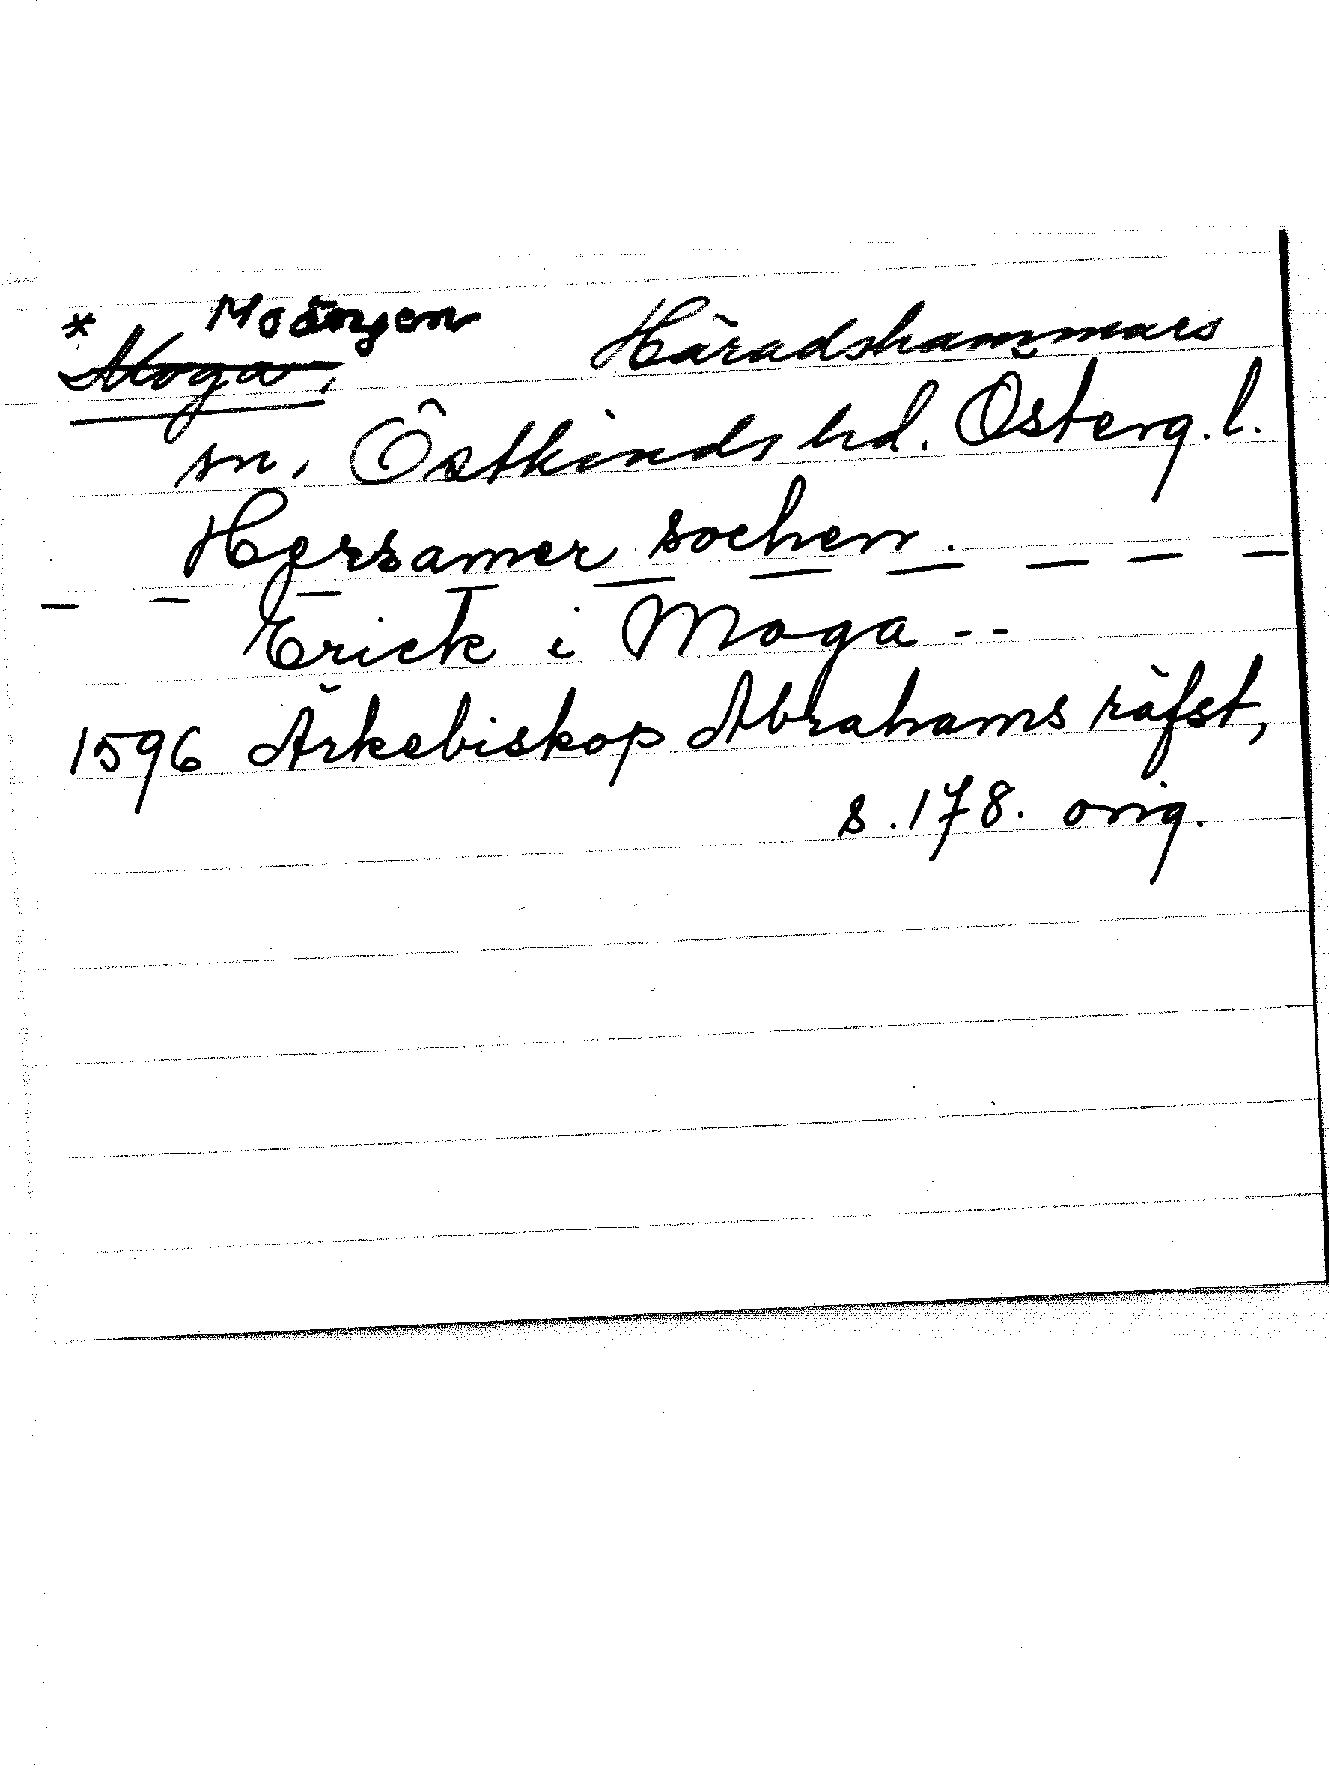 * Moängen
Moga, Häradshammars
sn, Östkinds hd. Österg. l.
Hersamer sochen.
Erick i Moga --
1596 Ärkebiskop Abrahams räfst,
s. 178. orig.